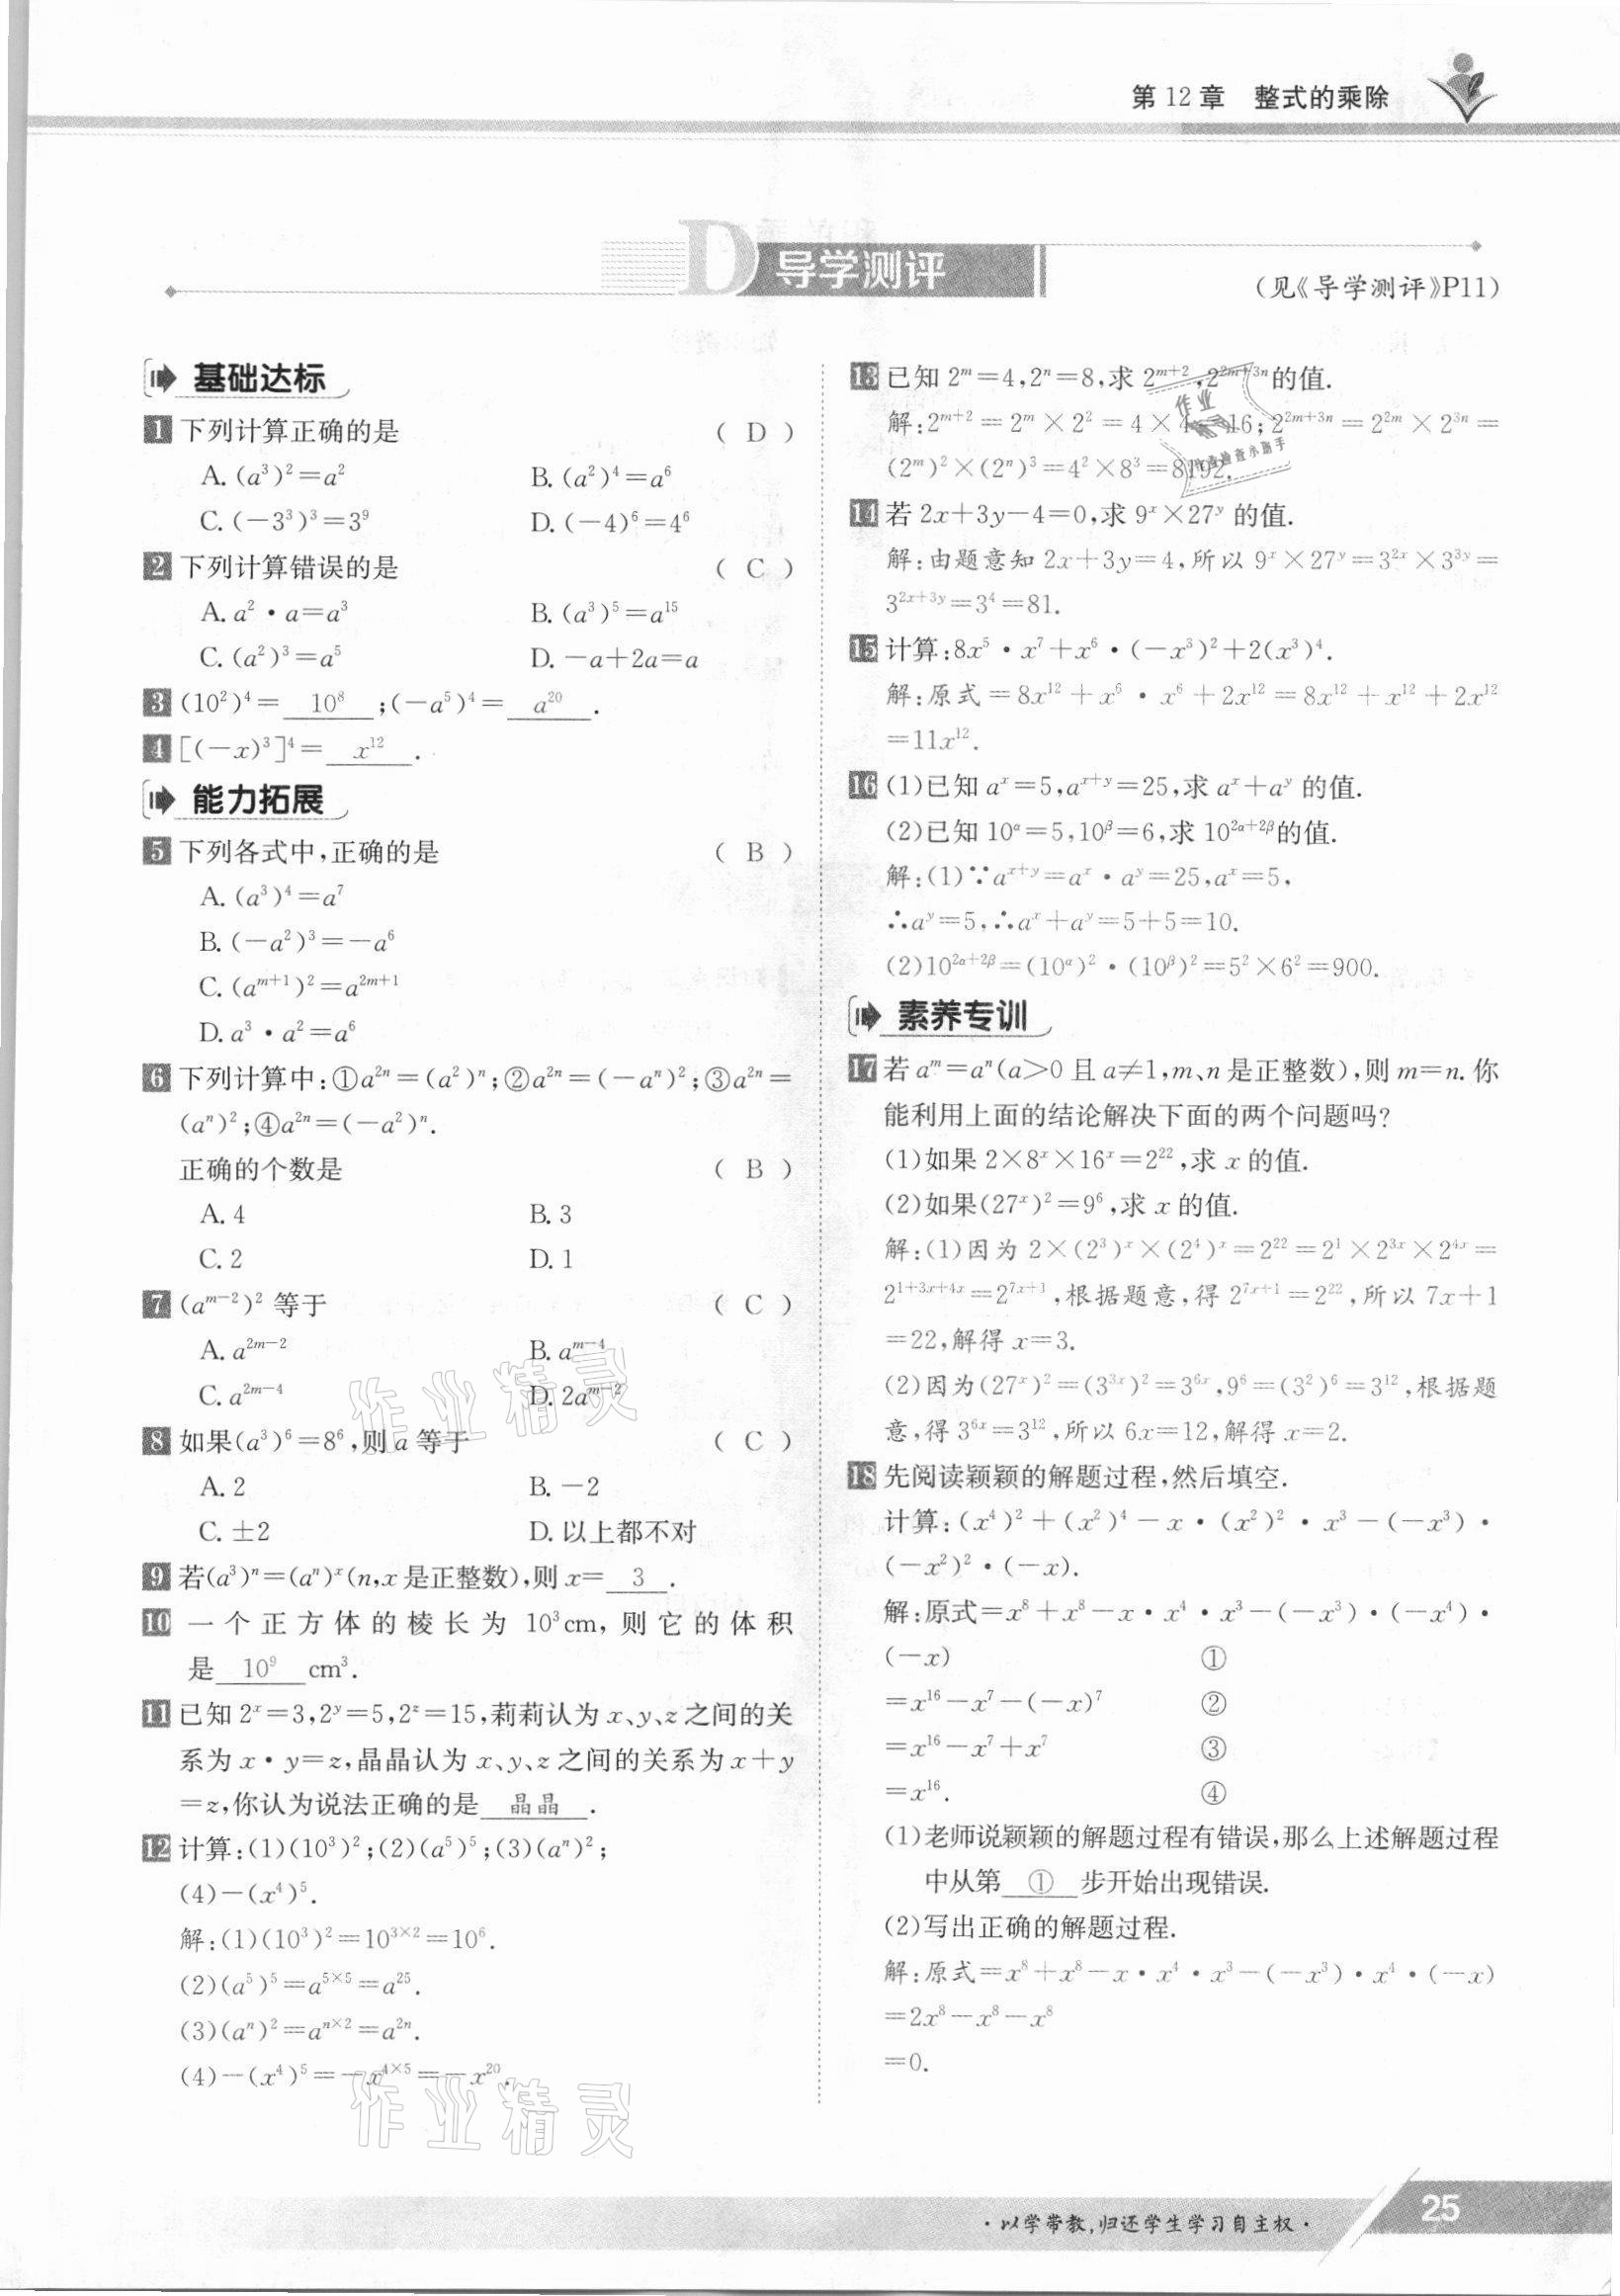 第12章 整式的乘除
D 导学测评
(见《导学测评》P11)
基础达标
1 下列计算正确的是 ( D )
A. (a³)²=a² B. (a²)⁴=a⁶
C. (-3³)³=3⁹ D. (-4)⁶=4⁶
2 下列计算错误的是 ( C )
A. a²·a=a³ B. (a³)⁵=a¹⁵
C. (a²)³=a⁵ D. -a+2a=a
3 (10²)⁴= 10⁸ ;(-a⁵)⁴= a²⁰ .
4 [(-x)³]⁴= x¹² .
能力拓展
5 下列各式中,正确的是 ( B )
A. (a³)⁴=a⁷
B. (-a²)³=-a⁶
C. (aᵐ⁺¹)²=a²ᵐ⁺¹
D. a³·a²=a⁶
6 下列计算中:①a²ⁿ=(a²)ⁿ;②a²ⁿ=(-aⁿ)²;③a²ⁿ=
(aⁿ)²;④a²ⁿ=(-a²)ⁿ.
正确的个数是 ( B )
A. 4 B. 3
C. 2 D. 1
7 (aᵐ⁻²)² 等于 ( C )
A. a²ᵐ⁻² B. aᵐ⁻⁴
C. a²ᵐ⁻⁴ D. 2aᵐ⁻²
8 如果(a³)⁶=8⁶,则 a 等于 ( C )
A. 2 B. -2
C. ±2 D. 以上都不对
9 若(a³)ⁿ=(aⁿ)ˣ(n,x是正整数),则 x= 3 .
10 一个正方体的棱长为 10³cm,则它的体积
是 10⁹ cm³.
11 已知 2ˣ=3,2ʸ=5,2ᶻ=15,莉莉认为 x、y、z 之间的关
系为 x·y=z,晶晶认为 x、y、z 之间的关系为 x+y
=z,你认为说法正确的是 晶晶 .
12 计算:(1)(10³)²;(2)(a⁵)⁵;(3)(aⁿ)²;
(4)-(x⁴)⁵.
解:(1)(10³)²=10³ˣ²=10⁶.
(2)(a⁵)⁵=a⁵ˣ⁵=a²⁵.
(3)(aⁿ)²=aⁿˣ²=a²ⁿ.
(4)-(x⁴)⁵=-x⁴ˣ⁵=-x²⁰.
13 已知 2ᵐ=4,2ⁿ=8,求 2ᵐ⁺²,2²ᵐ⁺³ⁿ的值.
解:2ᵐ⁺²=2ᵐ×2²=4×4=16;2²ᵐ⁺³ⁿ=2²ᵐ×2³ⁿ=
(2ᵐ)²×(2ⁿ)³=4²×8³=8192.
14 若 2x+3y-4=0,求 9ˣ×27ʸ 的值.
解:由题意知 2x+3y=4,所以 9ˣ×27ʸ=3²ˣ×3³ʸ=
3²ˣ⁺³ʸ=3⁴=81.
15 计算:8x⁵·x⁷+x⁶·(-x³)²+2(x³)⁴.
解:原式=8x¹²+x⁶·x⁶+2x¹²=8x¹²+x¹²+2x¹²
=11x¹².
16 (1)已知 aˣ=5,aˣ⁺ʸ=25,求 aˣ+aʸ 的值.
(2)已知 10ᵅ=5,10ᵝ=6,求 10²ᵅ⁺²ᵝ的值.
解:(1)∵aˣ⁺ʸ=aˣ·aʸ=25,aˣ=5,
∴aʸ=5,∴aˣ+aʸ=5+5=10.
(2)10²ᵅ⁺²ᵝ=(10ᵅ)²·(10ᵝ)²=5²×6²=900.
素养专训
17 若 aᵐ=aⁿ(a>0 且 a≠1,m、n 是正整数),则 m=n. 你
能利用上面的结论解决下面的两个问题吗?
(1)如果 2×8ˣ×16ˣ=2²²,求 x 的值.
(2)如果(27ˣ)²=9⁶,求 x 的值.
解:(1)因为 2×(2³)ˣ×(2⁴)ˣ=2²²=2¹×2³ˣ×2⁴ˣ=
2¹⁺³ˣ⁺⁴ˣ=2⁷ˣ⁺¹,根据题意,得 2⁷ˣ⁺¹=2²²,所以 7x+1
=22,解得 x=3.
(2)因为(27ˣ)²=(3³ˣ)²=3⁶ˣ,9⁶=(3²)⁶=3¹²,根据题
意,得 3⁶ˣ=3¹²,所以 6x=12,解得 x=2.
18 先阅读颖颖的解题过程,然后填空.
计算:(x⁴)²+(x²)⁴-x·(x²)²·x³-(-x³)·
(-x²)²·(-x).
解:原式=x⁸+x⁸-x·x⁴·x³-(-x³)·(-x⁴)·
(-x) ①
=x¹⁶-x⁷-(-x)⁷ ②
=x¹⁶-x⁷+x⁷ ③
=x¹⁶. ④
(1)老师说颖颖的解题过程有错误,那么上述解题过程
中从第 ① 步开始出现错误.
(2)写出正确的解题过程.
解:原式=x⁸+x⁸-x·x⁴·x³-(-x³)·x⁴·(-x)
=2x⁸-x⁸-x⁸
=0.
作业精灵
作业精灵
作业
检查小助手
·以学带教,归还学生学习自主权·
25